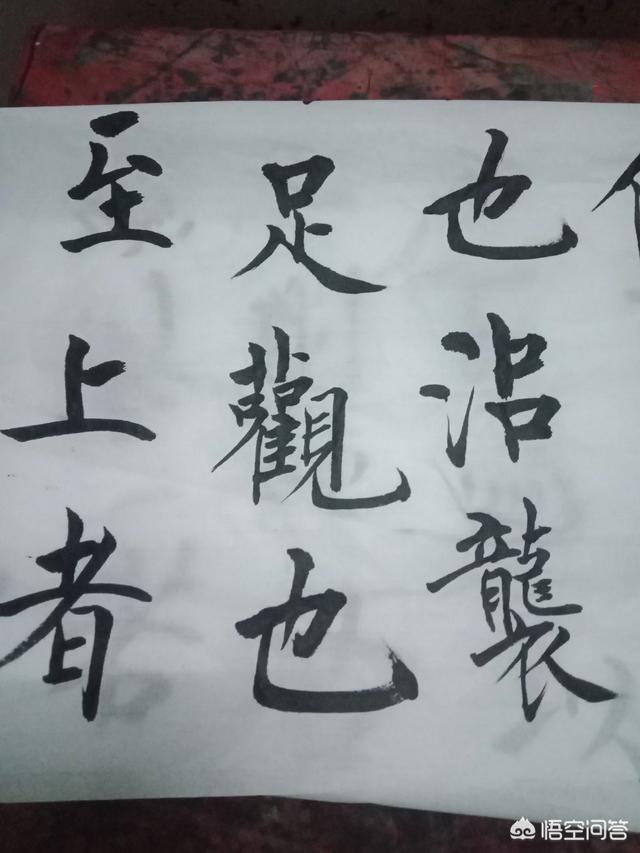 也沾襲
足觀也
至上者
悟空问答